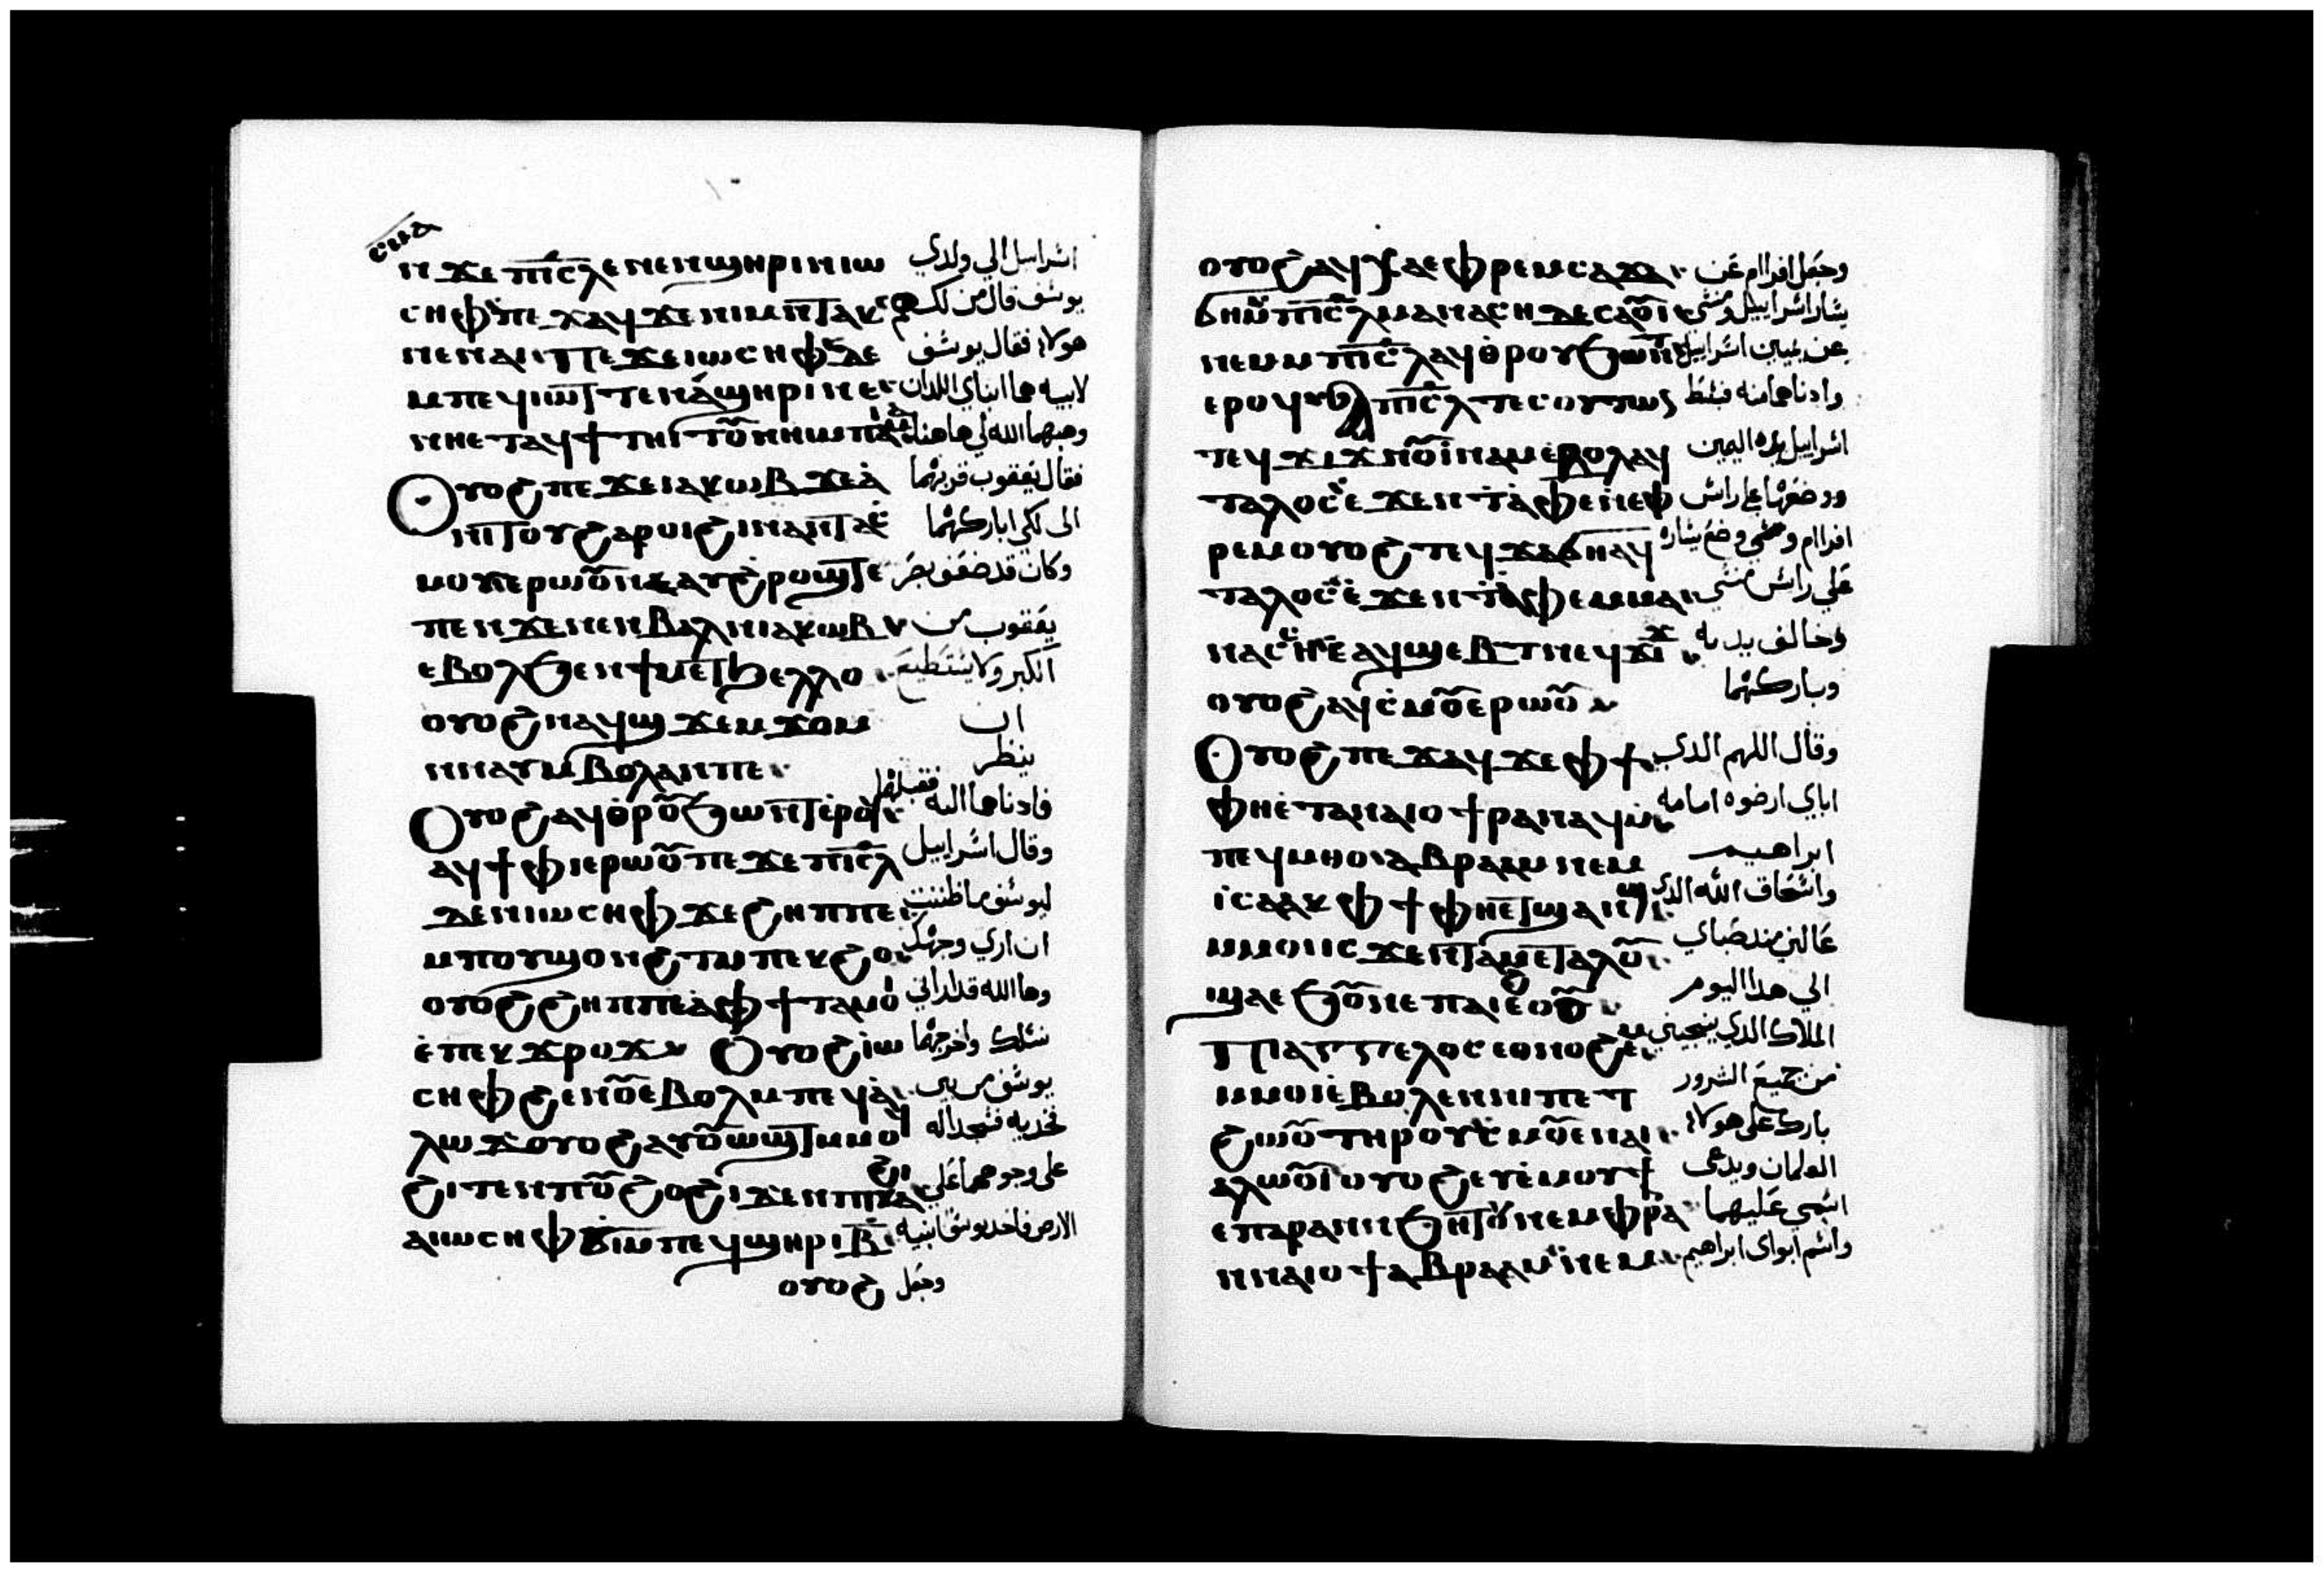 ⲥⲙⲁ
ⲛϫⲉⲡⲓⲥ̅ⲗ ⲉⲛⲉⲛϣⲏⲣⲓⲛⲓⲱ اسراييل الي ولدي
ⲥⲏⲫ ⲡⲉϫⲁϥϫⲉⲛⲓⲙⲛⲧⲁⲕ يوسف قال من لك
ⲛⲉⲛⲁⲓ ⲡⲉϫⲉⲓⲱⲥⲏⲫ ⲇⲉ هولاء فقال يوسف
ⲙⲡⲉϥⲓⲱⲧ ⲧⲉⲛⲁϣⲏⲣⲓⲛⲉ لابيه هما ابناي اللدان
ⲛⲏⲉⲧⲁϥϯⲧⲏⲓⲧⲟⲩⲛⲏⲓ وهبهما الله لي هاهنا
ⲟⲩⲟϩⲡⲉϫⲉⲓⲁⲕⲱⲃϫⲉⲁ فقال يعقوب قربهما
ⲛⲓⲧⲟⲩϩⲁⲣⲟⲓϩⲓⲛⲁⲛⲧⲁⲥ الى لكى اباركهما
ⲙⲟⲩⲉⲣⲱⲟⲩⲛⲉⲁⲩϩⲣⲟϣⲧⲉ وكان قد ضعف بصر
ⲡⲉⲛϫⲉⲛⲉⲛⲃⲁⲗⲛⲓⲁⲕⲱⲃ يعقوب من
ⲉⲃⲟⲗϧⲉⲛϯⲙⲉⲧϧⲉⲗⲗⲟ الكبر ولا يستطيع
ⲟⲩⲟϩⲛⲁϥϣϫⲉⲙϫⲟⲙ ان
ⲛⲛⲁⲩⲙⲃⲟⲗⲁⲛⲡⲉ ينظر
ⲟⲩⲟϩⲁϥⲑⲣⲟⲩϧⲱⲛⲧⲉⲣⲟϥ فادناهما اليه فقبلهما
ⲁϥϯⲫⲓⲉⲣⲱⲟⲩⲡⲉϫⲉⲡⲓⲥ̅ⲗ وقال اسراييل
ⲇⲉⲛⲓⲱⲥⲏⲫϫⲉϩⲏⲡⲡⲉ ليوسف ما ظننت
ⲙⲡⲟⲩϣⲟⲛϩⲧⲙⲡⲉⲕϩⲟ ان اري وجهك
ⲟⲩⲟϩϩⲏⲡⲡⲉⲁⲫϯⲧⲁⲙⲟⲓ وها الله قد اراني
ⲉⲡⲉⲕϫⲣⲟϫ ⲟⲩⲟϩⲓⲱ نسلك واخرجهما
ⲥⲏⲫϩⲉⲛⲟⲩⲉⲃⲟⲗⲙⲡⲉϥⲁ يوسف من بين
ⲗⲱϫⲟⲩⲟϩⲁⲩⲟⲩⲱϣⲧⲙⲙⲟϥ فخديه فسجدا له
ϩⲓⲧⲉⲛⲡⲟⲩϩⲟϩⲓϫⲉⲛⲡⲓⲕⲁϩⲓ على وجوههما على
ⲁⲓⲱⲥⲏⲫϭⲓⲙⲡⲉϥϣⲏⲣⲓⲃ الارض فاخد يوسف ابنيه
ⲟⲩⲟϩ وجعل
ⲟⲩⲟϩⲁϥⲭⲁⲉⲫⲣⲉⲙⲥⲁϫⲁ وجعل افراام عن
ϭⲏⲙⲡⲓⲥ̅ⲗⲙⲁⲛⲁⲥⲏⲇⲉⲥⲁⲟⲩⲓ يسار اسراييل ومنسى
ⲛⲉⲙⲙⲡⲓⲥ̅ⲗⲁϥⲑⲣⲟⲩϧⲱⲛⲧ عن يمين اسراييل
ⲉⲣⲟϥ ⲡⲓⲥ̅ⲗⲧⲉⲥⲟⲩⲧⲱⲛ وادناهما منه فبسط
ⲧⲉϥϫⲓϫⲛⲟⲩⲓⲛⲁⲙⲉⲃⲟⲗⲁϥ اسراييل يده اليمين
ⲧⲁⲗⲟⲥⲉϫⲉⲛⲧⲁⲫⲉⲛⲉⲫ ووضعها على راس
ⲣⲉⲙⲟⲩⲟϩⲧⲉϥϫⲁϭⲏⲁϥ افراام ووضع يساره
ⲧⲁⲗⲟⲥⲉϫⲉⲛⲧⲁⲫⲉⲙⲙⲁⲛ على راس منسى
ⲛⲁⲥⲏⲉⲁϥϣⲉⲃⲧⲛⲉϥϫⲓϫ وخالف يديه
ⲟⲩⲟϩⲁϥⲥⲙⲟⲩⲉⲣⲱⲟⲩ وباركهما
ⲟⲩⲟϩⲡⲉϫⲁϥϫⲉⲫϯ وقال اللهم الدي
ⲫⲏⲉⲧⲁⲛⲁⲓⲟϯⲣⲁⲛⲁϥⲙ اباي ارضوه امامه
ⲡⲉϥⲙⲑⲟⲁⲃⲣⲁⲁⲙⲛⲉⲙ ابراهيم
ⲓⲥⲁⲁⲕⲫϯⲫⲏⲉⲧϣⲁⲛϣ واسحاق الله الدي
ⲙⲙⲟⲓⲓⲥϫⲉⲛⲧⲁⲙⲉⲧⲁⲗⲟⲩ عالني مند صباي
ϣⲁⲉϧⲟⲩⲛⲉⲡⲁⲓⲉϩⲟⲟⲩ الي هدا اليوم
ⲡⲓⲁⲅⲅⲉⲗⲟⲥⲉⲑⲛⲟϩⲉⲙ الملاك الدي ينجيني
ⲙⲙⲟⲓⲉⲃⲟⲗⲉⲛⲛⲓⲡⲉⲧ من جميع الشرور
ϩⲱⲟⲩⲧⲏⲣⲟⲩⲥⲙⲟⲩⲉⲛⲁⲓ بارك على هولاء
ⲁⲗⲱⲟⲩⲓⲟⲩⲟϩⲉⲩⲉⲙⲟⲩϯ الغلمان ويدعى
ⲉⲡⲁⲣⲁⲛⲛϧⲏⲧⲟⲩⲛⲉⲙⲫⲣⲁ اسمي عليهما
ⲛⲛⲁⲓⲟϯⲁⲃⲣⲁⲁⲙⲛⲉⲙ واسم ابواى ابراهيم